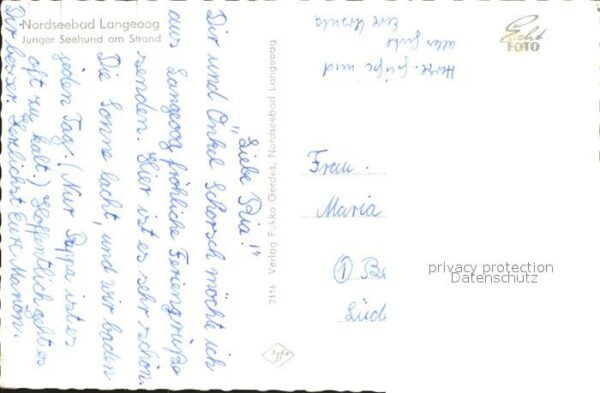 Nordseebad Langeoog
Junger Seehund am Strand
"Liebe Ria!"
Dir und Onkel Schorsch möchte ich
aus Langeoog fröhliche Feriengrüße
senden. Hier ist es sehr schön.
Die Sonne lacht, und wir baden
jeden Tag. (Nur Pappa ist es
oft zu kalt.) Hoffentlich geht es
Dir besser. Herzlichst Eure Marion.
2516 Verlag Fokko Gerdes, Nordseebad Langeoog
Agfa
Echt
FOTO
Herzl. Grüße und
alles Gute
Eure Ursula
Frau
Maria
1 Be
privacy protection
Datenschutz